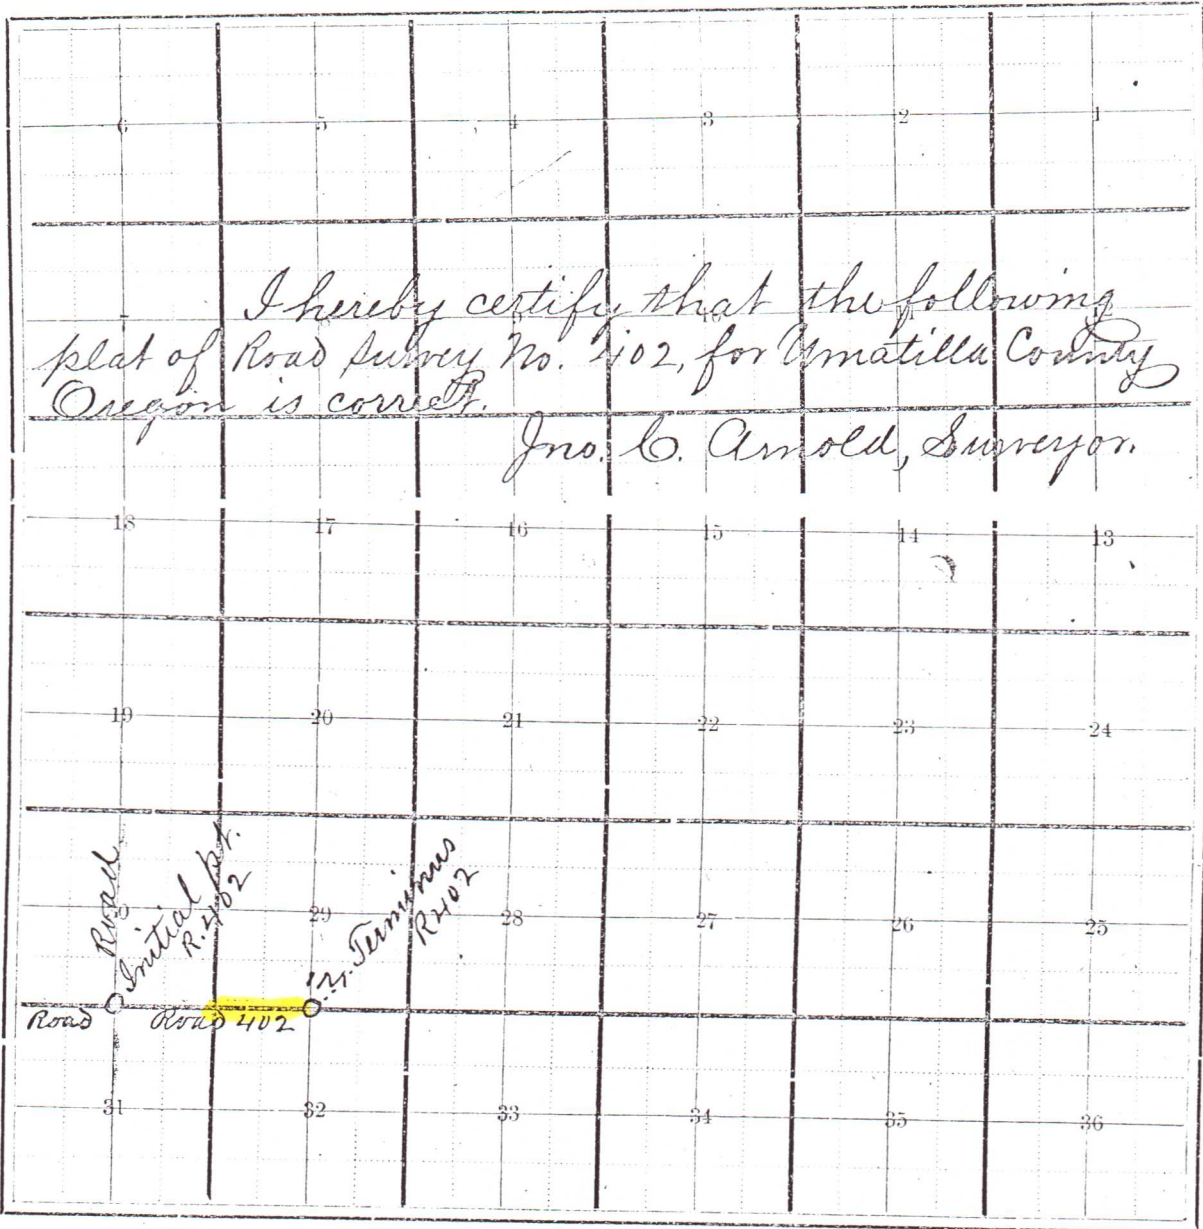 6 5 4 3 2 1
I hereby certify that the following
plat of Road Survey No. 402, for Umatilla County
Oregon is correct.
Jno. C. Arnold, Surveyor.
18 17 16 15 14 13
19 20 21 22 23 24
Road
Initial pt.
R. 402
Terminus
R 402
29 28 27 26 25
Road Road 402
31 32 33 34 35 36